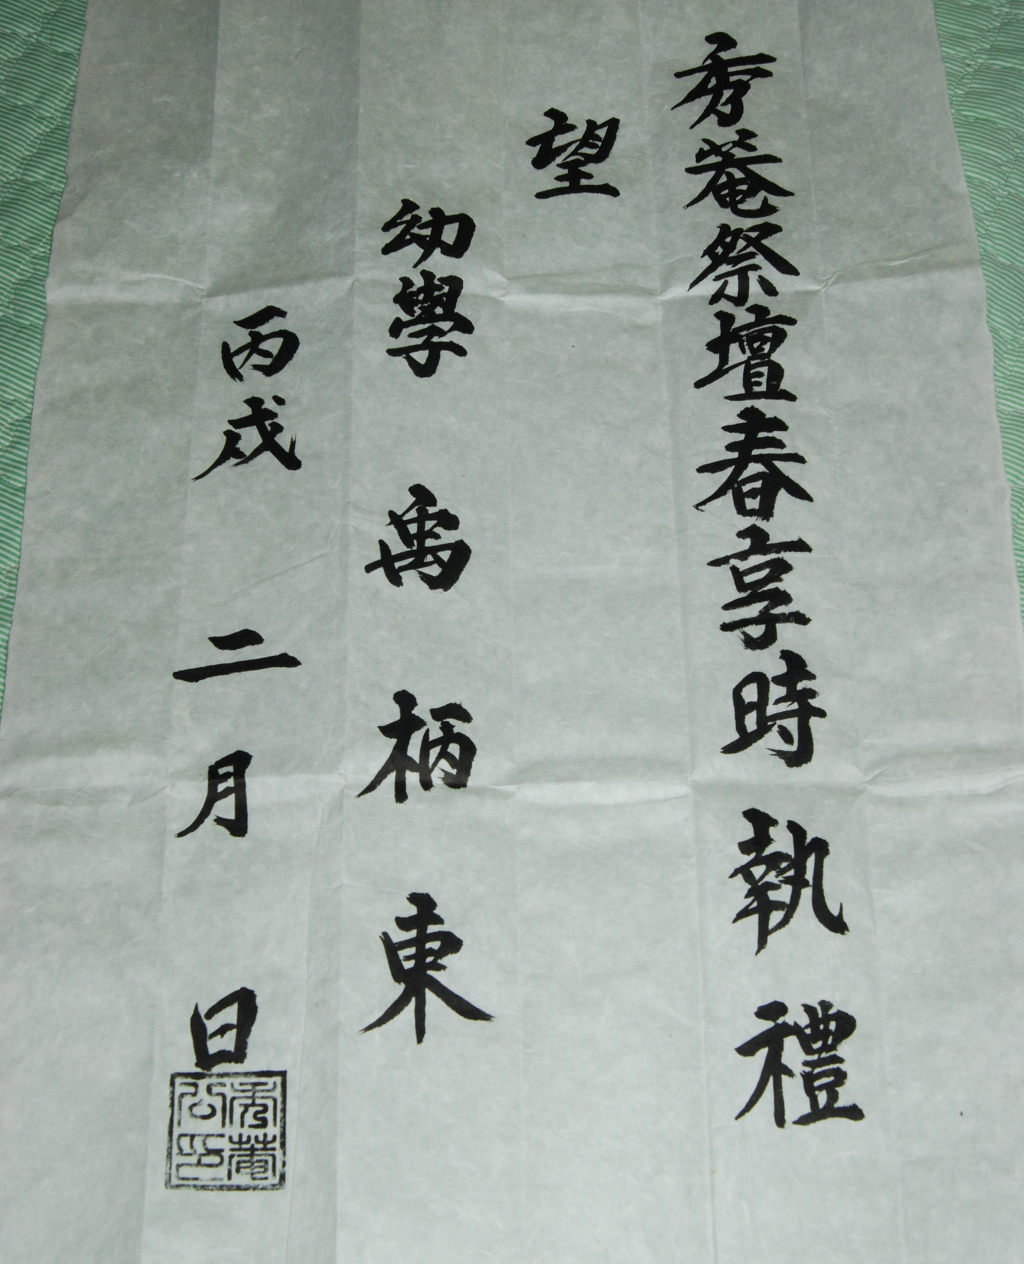 秀菴祭壇春享時執禮
望
幼學 禹柄東
丙戌 二月 日
秀菴公印